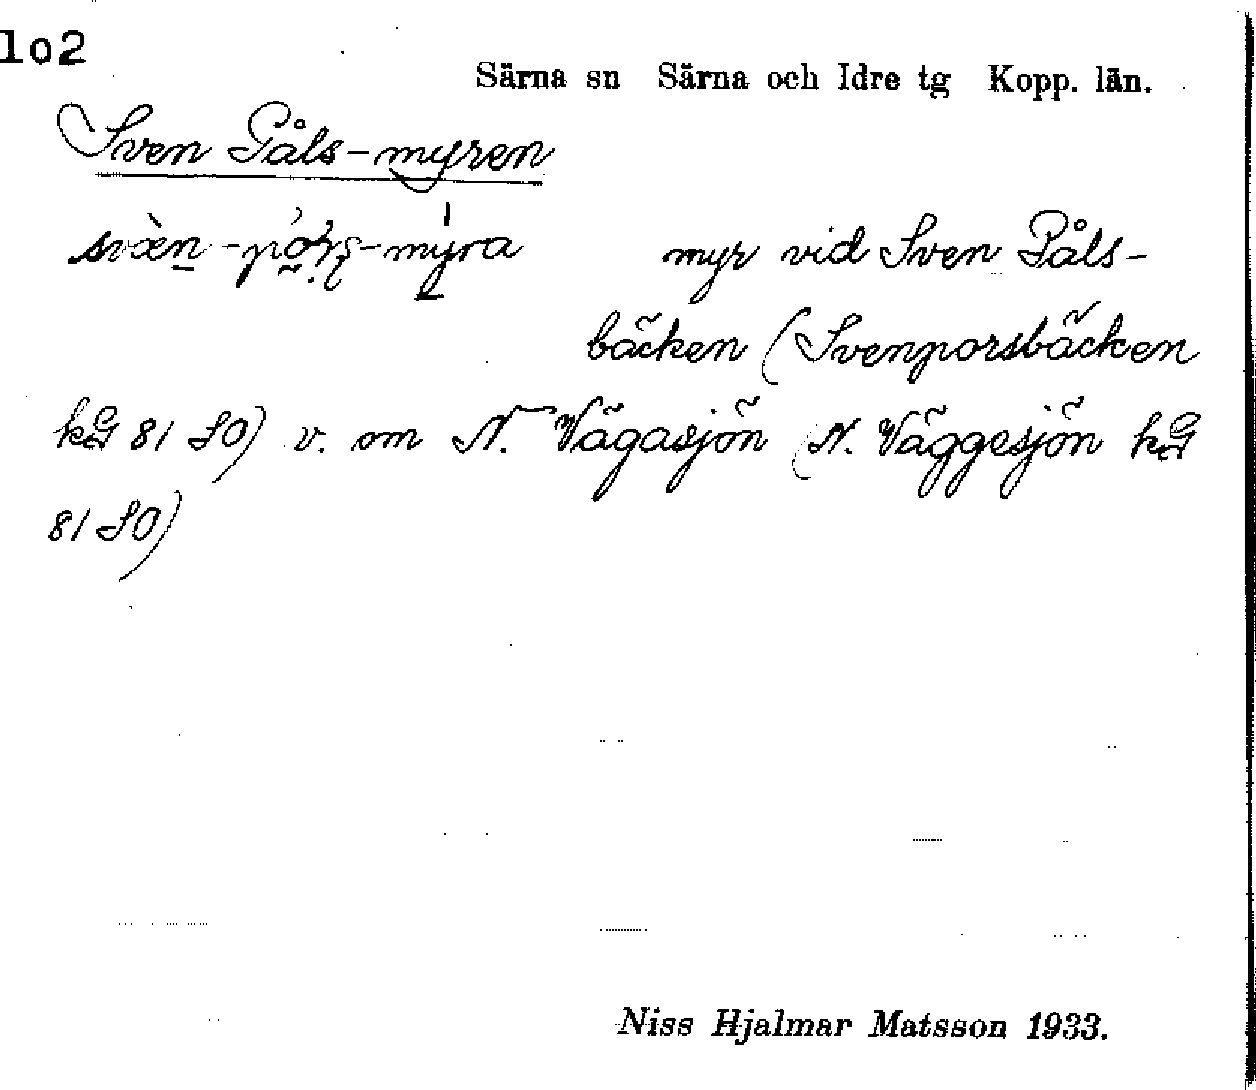 1o2
Särna sn Särna och Idre tg Kopp. län.
Sven Påls-myren
myr vid Sven Påls-
bäcken (Svenporsbäcken
kG 81 SO) v. om N. Vägasjön (N. Väggesjön kG
81 SO)
Niss Hjalmar Matsson 1933.